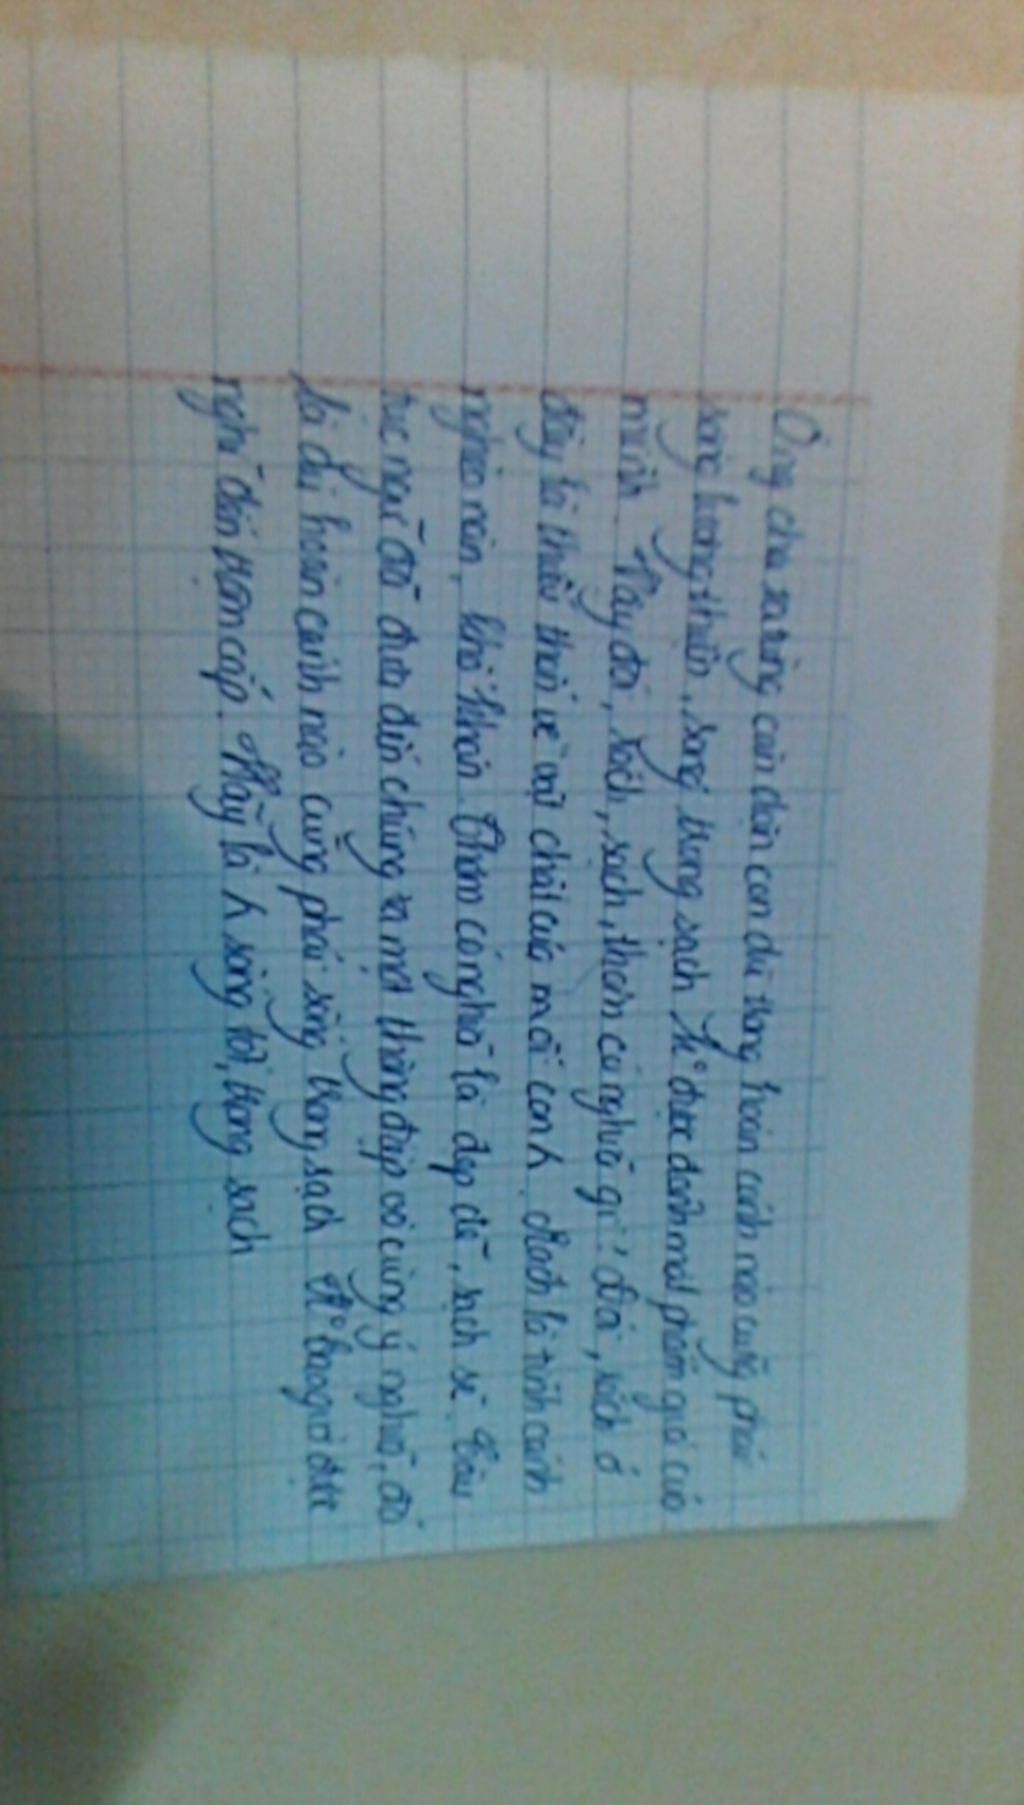 Ông cha ta từng căn dặn con dù trong hoàn cảnh nào cũng phải
sống lương thiện, sống trong sạch k° được đánh mất phẩm giá của
mình. Vậy đói, rách, sạch, thơm có nghĩa gì? Đói, rách ở
đây là thiếu thốn về vật chất của mỗi con . Rách là tình cảnh
nghèo nàn, khó khăn. Thơm có nghĩa là đẹp đẽ, sạch sẽ. Câu
tục ngữ đã đưa đến chúng ta một thông điệp vô cùng ý nghĩa, đó
là dù hoàn cảnh nào cũng phải sống trong sạch k° bao giờ được
nghĩ đến trộm cắp. Hãy là sống tốt, trong sạch